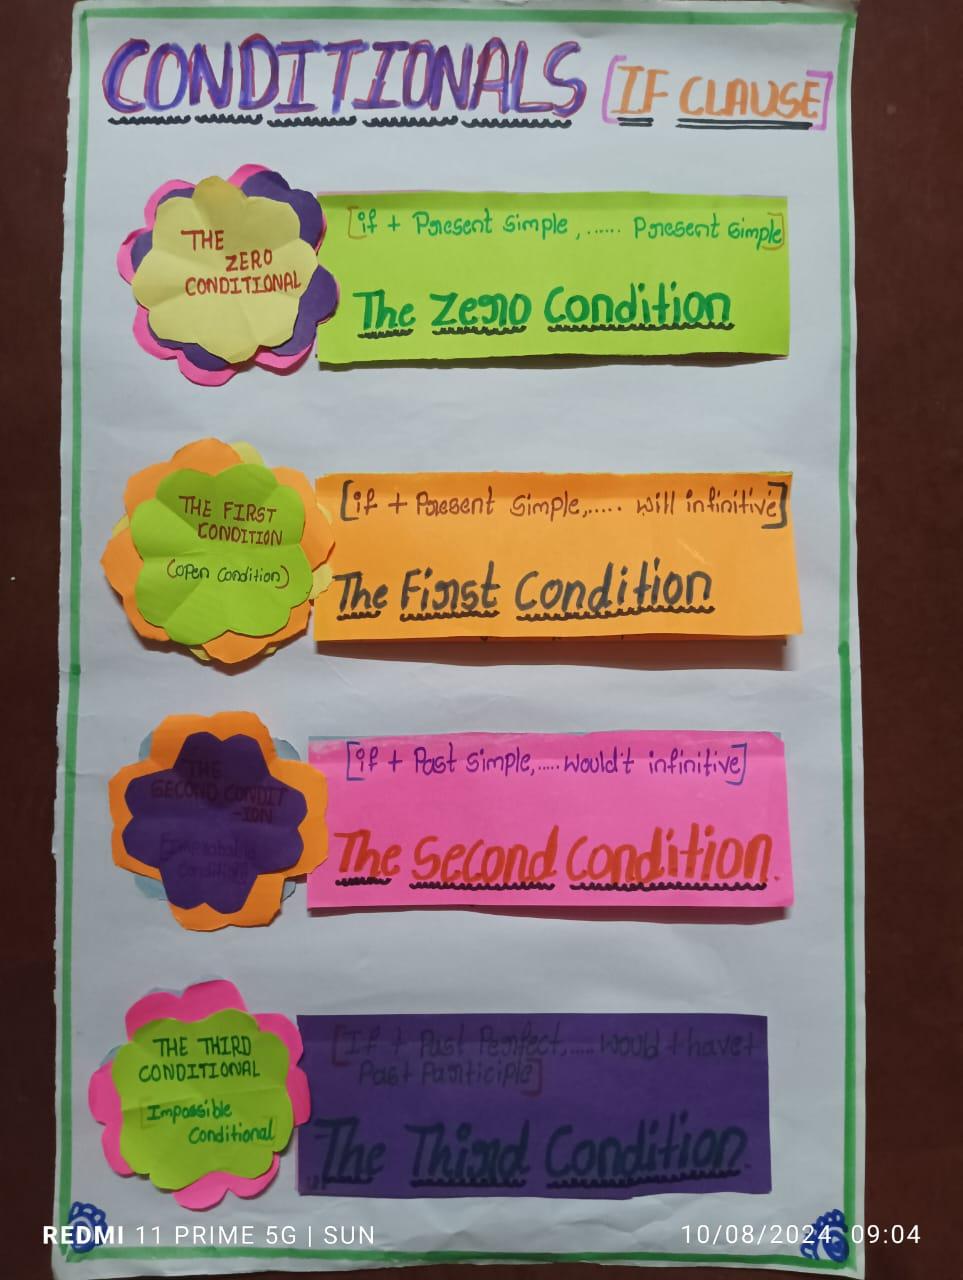 CONDITIONALS [IF CLAUSE]
THE
ZERO
CONDITIONAL
[if + Present simple ,...... Present simple]
The Zero Condition
THE FIRST
CONDITION
(open condition)
[if + Present simple,..... will infinitive]
The First Condition
THE
SECOND CONDIT
-ION
[Improbable
Condition]
[if + Past simple,.....would't infinitive]
The Second Condition.
THE THIRD
CONDITIONAL
[Impossible
Conditional]
[If + Past Perfect,..... would + have +
Past Participle]
The Third Condition.
REDMI 11 PRIME 5G | SUN
10/08/2024 09:04